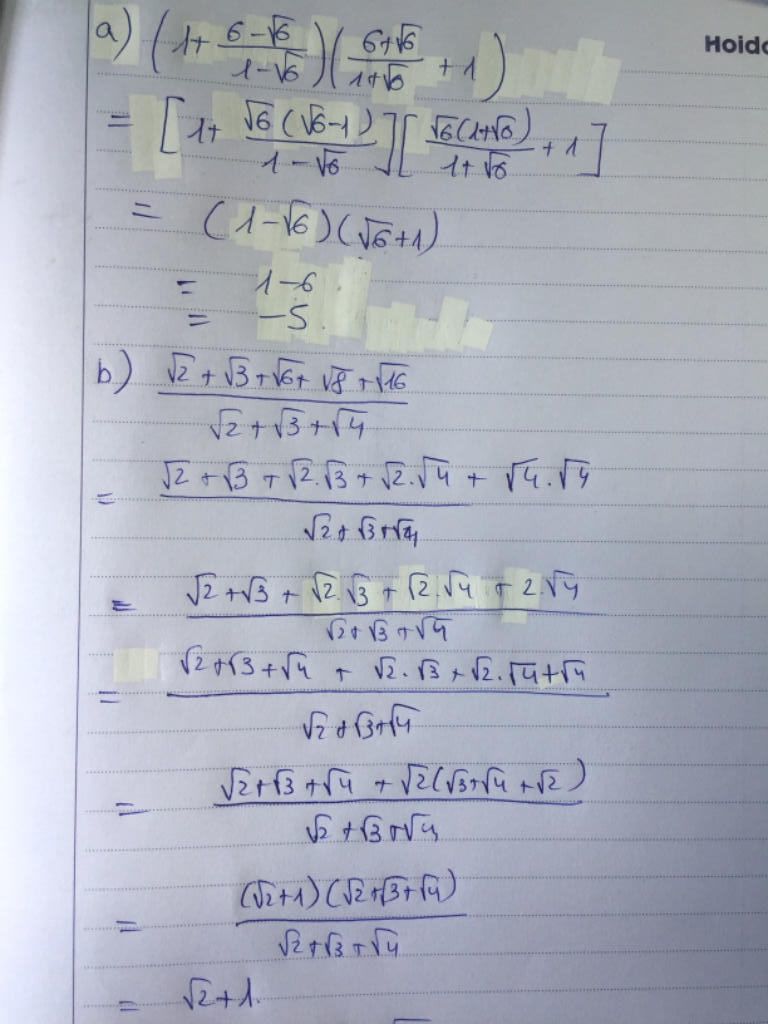 Hoidc
a) (1 + (6 - √6)/(1 - √6)) ((6 + √6)/(1 + √6) + 1)
= [1 + √6(√6 - 1)/(1 - √6)] [√6(1 + √6)/(1 + √6) + 1]
= (1 - √6)(√6 + 1)
= 1 - 6
= -5
b) (√2 + √3 + √6 + √8 + √16)/(√2 + √3 + √4)
= (√2 + √3 + √2.√3 + √2.√4 + √4.√4)/(√2 + √3 + √4)
= (√2 + √3 + √2.√3 + √2.√4 + 2.√4)/(√2 + √3 + √4)
= (√2 + √3 + √4 + √2.√3 + √2.√4 + √4)/(√2 + √3 + √4)
= (√2 + √3 + √4 + √2(√3 + √4 + √2))/(√2 + √3 + √4)
= (√2 + 1)(√2 + √3 + √4)/(√2 + √3 + √4)
= √2 + 1.